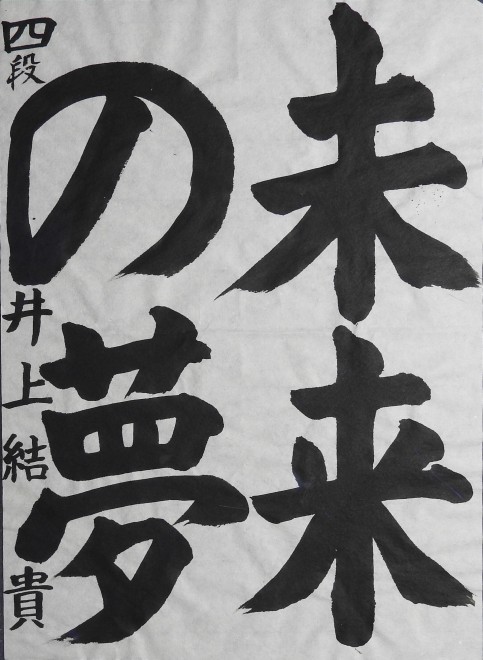 未来
の夢
四段
井上結貴